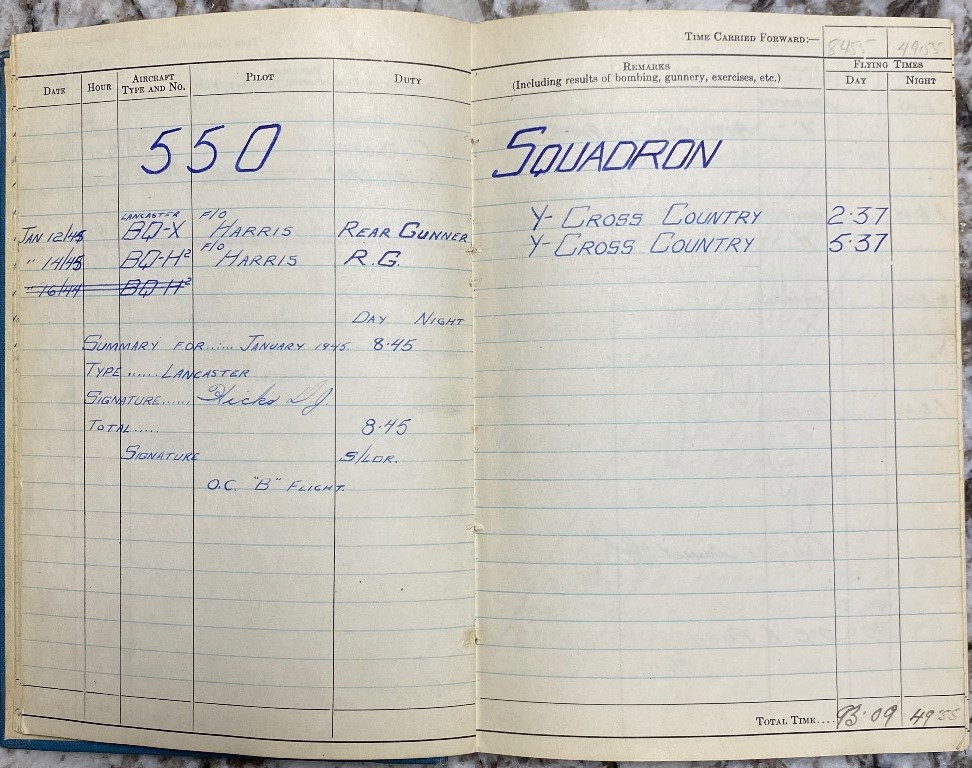 TIME CARRIED FORWARD:— 8455 49.55.
DATE HOUR AIRCRAFT TYPE AND No. PILOT DUTY REMARKS (Including results of bombing, gunnery, exercises, etc.) FLYING TIMES DAY NIGHT
550 SQUADRON
JAN 12/45 LANCASTER BQ-X F/O HARRIS REAR GUNNER Y- CROSS COUNTRY 2.37
" 14/45 BQ-H² F/O HARRIS R.G. Y- CROSS COUNTRY 5.37
" 16/44 BQ-H²
DAY NIGHT
SUMMARY FOR...... JANUARY 1945. 8.45
TYPE...... LANCASTER
SIGNATURE...... Hicks D.J.
TOTAL..... 8.45
SIGNATURE S/LDR.
O.C. "B" FLIGHT.
TOTAL TIME.... 93.09 49 55